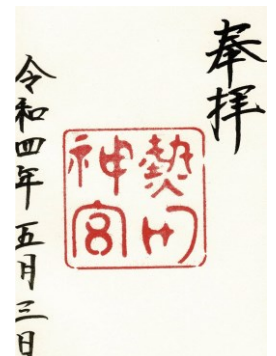 奉拝
熱田
神宮
令和四年五月三日